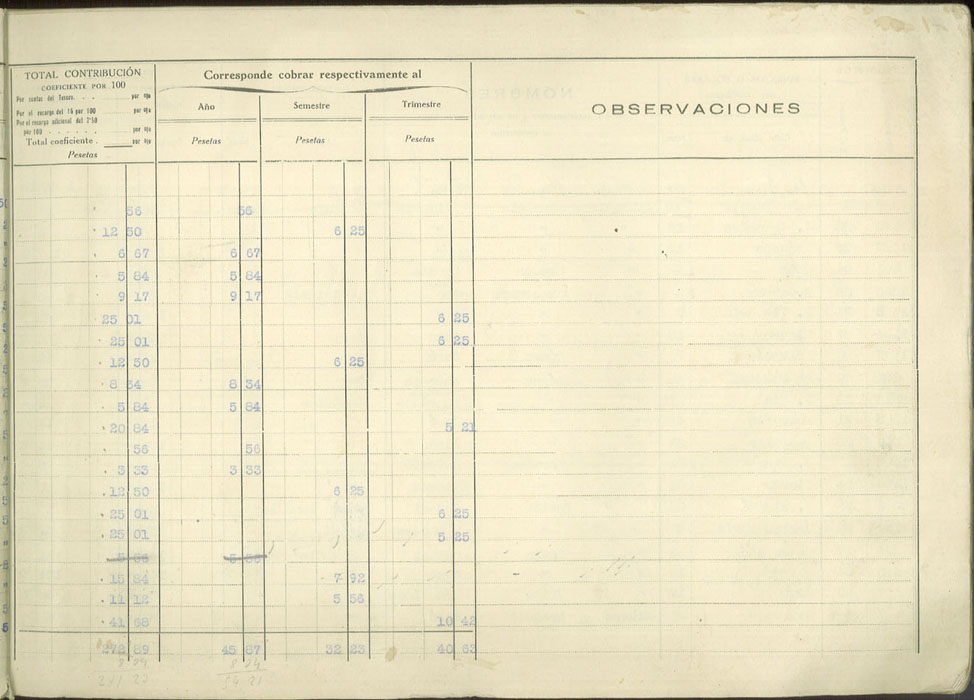 TOTAL CONTRIBUCIÓN
COEFICIENTE POR 100
Por cuotas del Tesoro. . . por %
Por el recargo del 16 por 100 por %
Por el recargo adicional del 7'50
por 100 . . . . . . por %
Total coeficiente . por %
Pesetas
Corresponde cobrar respectivamente al
Año
Pesetas
Semestre
Pesetas
Trimestre
Pesetas
OBSERVACIONES
56 56
12 50 6 25
6 67 6 67
5 84 5 84
9 17 9 17
25 01 6 25
25 01 6 25
12 50 6 25
8 34 8 34
5 84 5 84
20 84 5 21
56 56
3 33 3 33
12 50 6 25
25 01 6 25
25 01 5 25
15 84 7 92
11 12 5 56
41 68 10 42
89 45 87 32 23 40 63